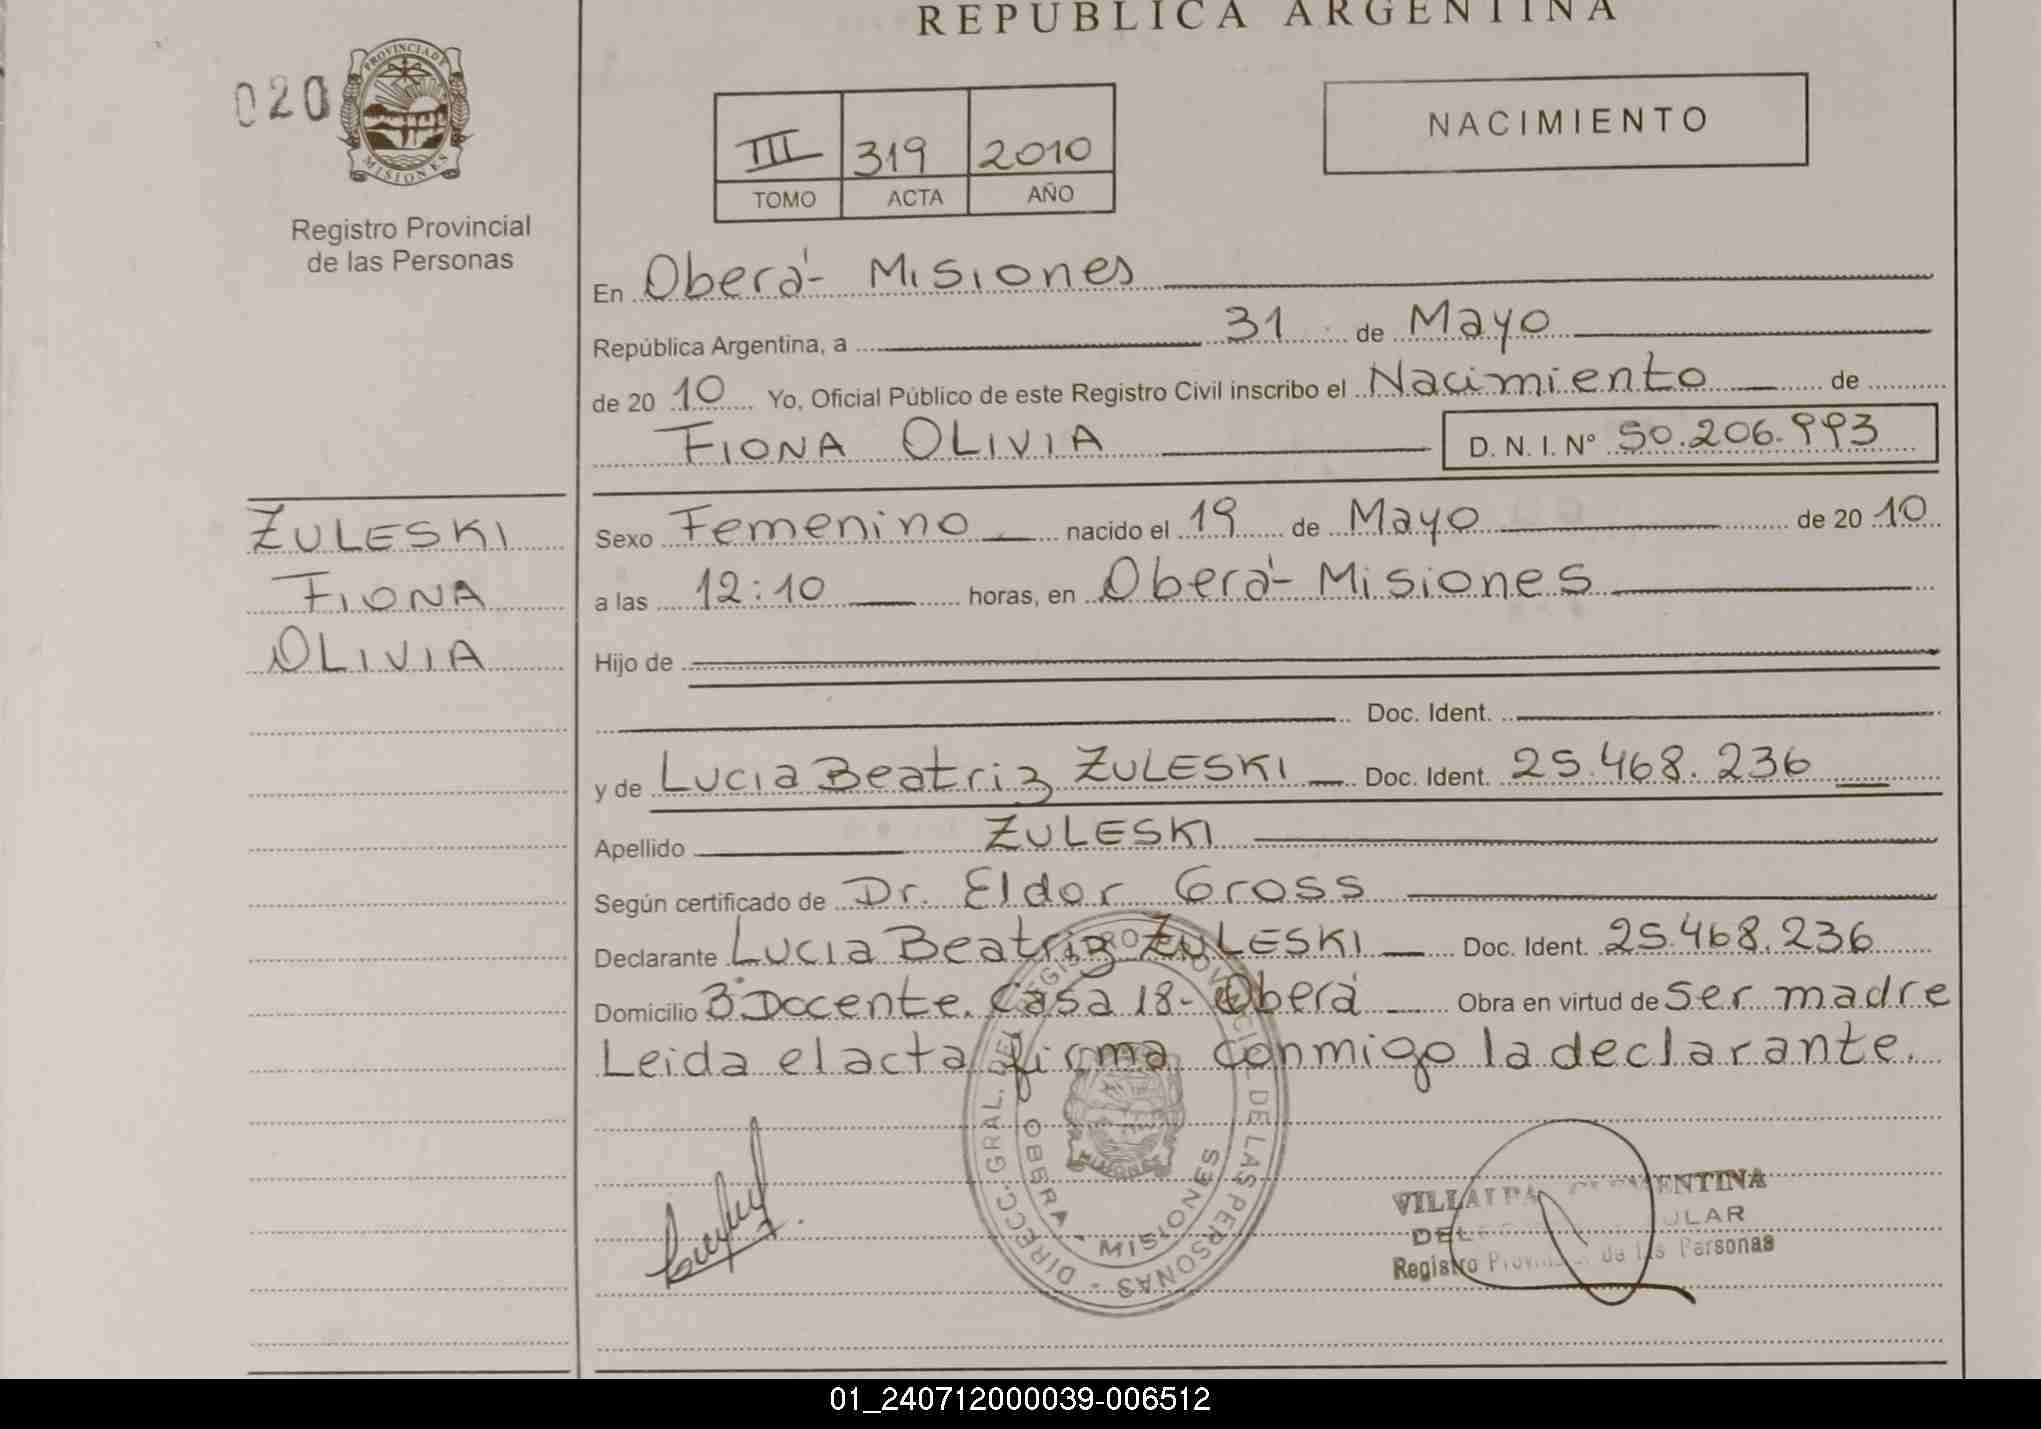 REPUBLICA ARGENTINA
020
PROVINCIA DE
MISIONES
Registro Provincial
de las Personas
III 319 2010
TOMO ACTA AÑO
NACIMIENTO
En Oberá- Misiones
República Argentina, a 31 de Mayo
de 20 10 Yo, Oficial Público de este Registro Civil inscribo el Nacimiento de
FIONA OLIVIA D. N. I. Nº 50.206.993
ZULESKI
FIONA
OLIVIA
Sexo Femenino nacido el 19 de Mayo de 20 10
a las 12:10 horas, en Oberá- Misiones
Hijo de
Doc. Ident.
y de Lucia Beatriz ZULESKI Doc. Ident. 25.468.236
Apellido ZULESKI
Según certificado de Dr. Eldor Gross
Declarante Lucia Beatriz ZULESKI Doc. Ident. 25.468.236
Domicilio Bº Docente. Casa 18- Oberá Obra en virtud de ser madre
Leida el acta firma conmigo la declarante.
DIRECC. GRAL. DEL REGISTRO PROVINCIAL DE LAS PERSONAS -
OBERA - MISIONES
MISIONES
VILLALBA CLEMENTINA
Registro Provincial de las Personas
01_240712000039-006512